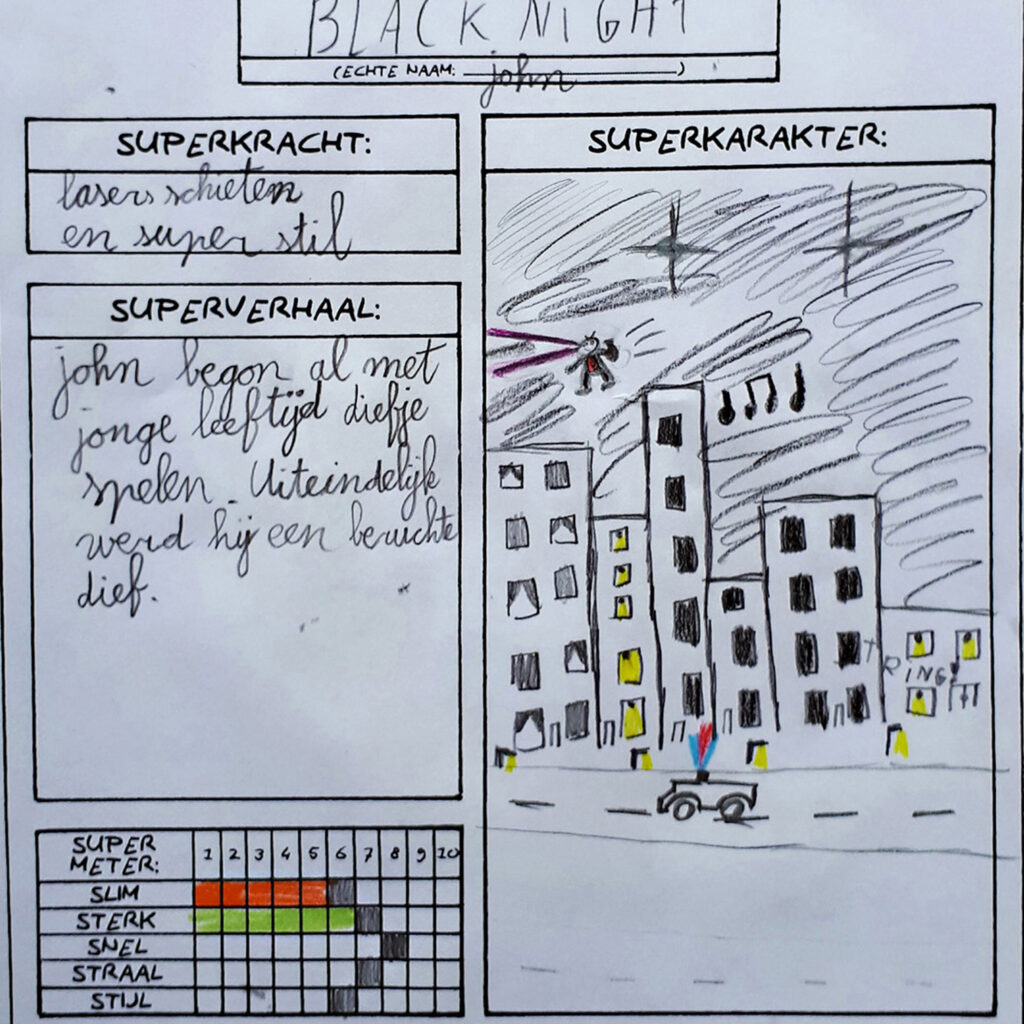 BLACK NIGHT
(ECHTE NAAM: john)
SUPERKRACHT:
lasers schieten
en super stil
SUPERVERHAAL:
john begon al met
jonge leeftijd diefje
spelen. Uiteindelijk
werd hij een beruchte
dief.
SUPER METER:
1 2 3 4 5 6 7 8 9 10
SLIM
STERK
SNEL
STRAAL
STIJL
SUPERKARAKTER:
TRING!